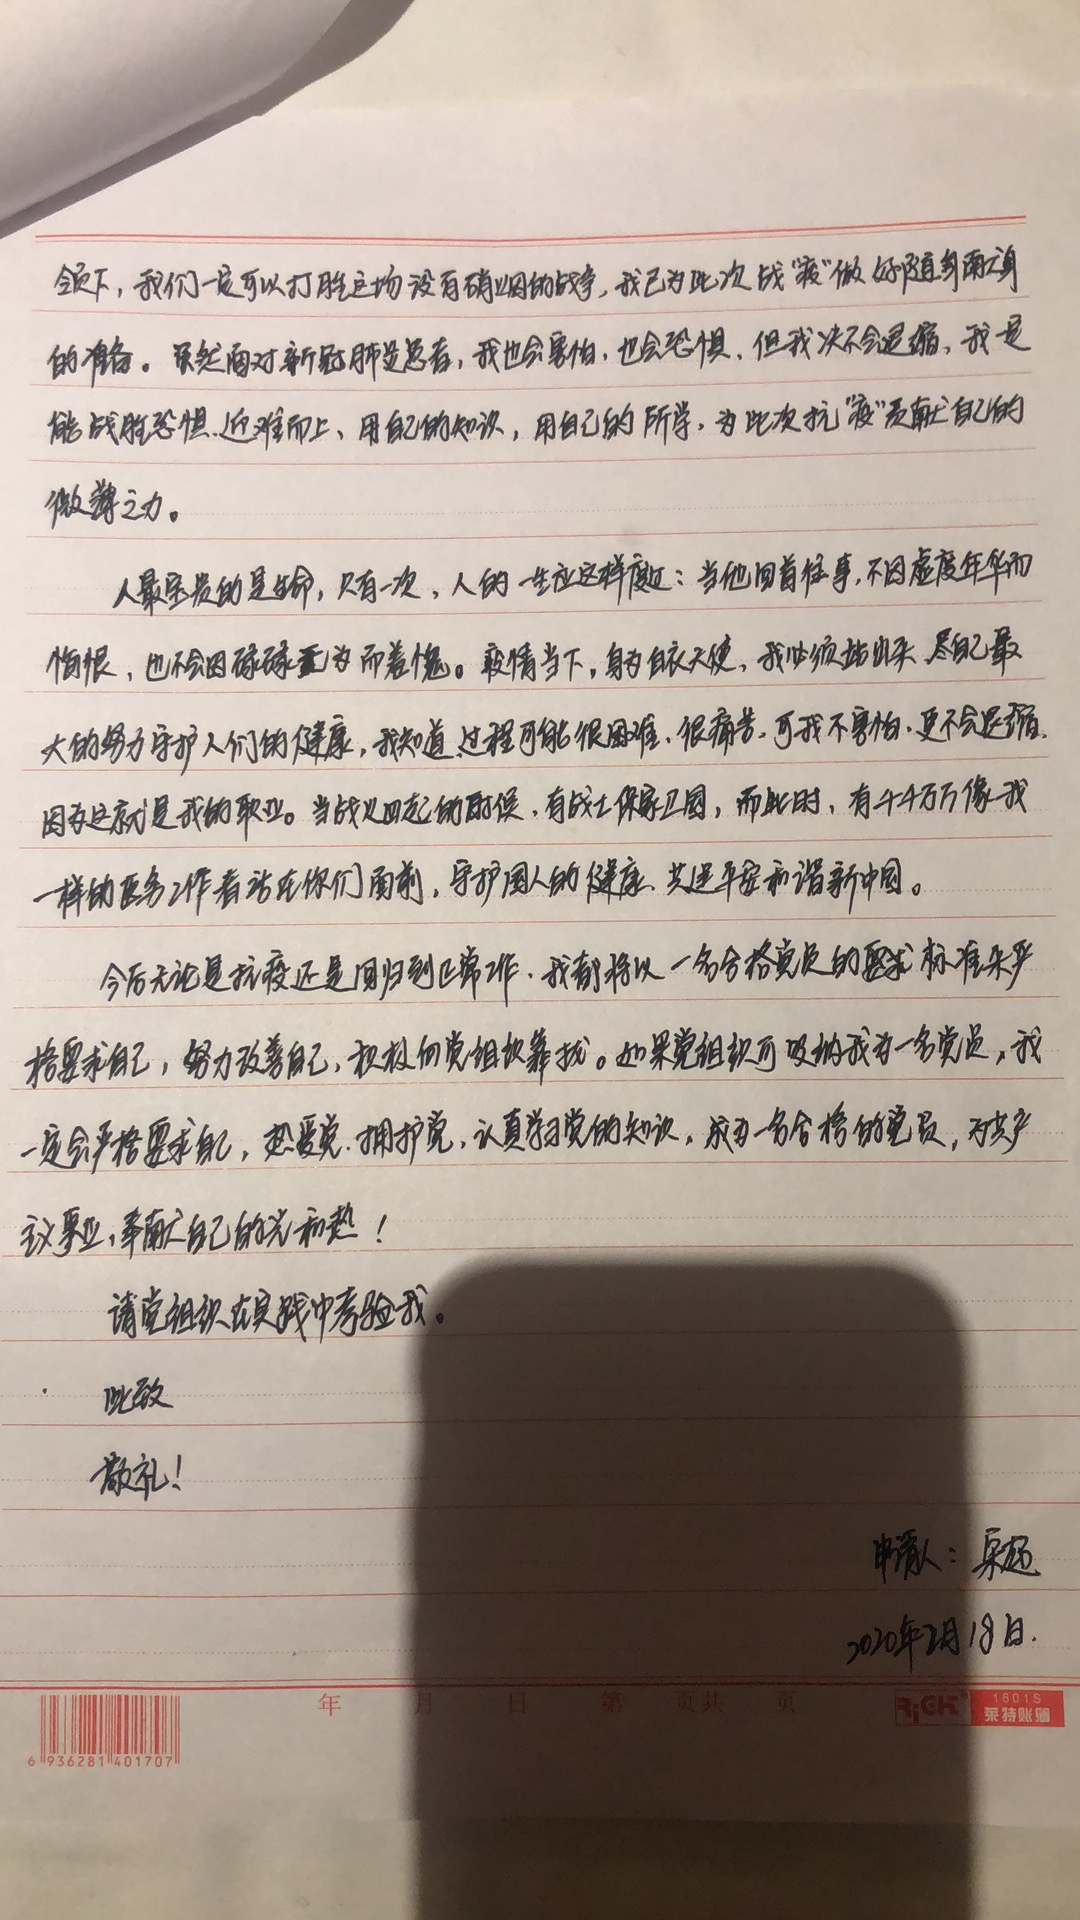 领下，我们一定可以打胜这场没有硝烟的战争，我已为此次战“疫”做好随时献身
的准备。虽然面对新冠肺炎患者，我也会害怕，也会恐惧，但我决不会退缩，我是
能战胜恐惧、迎难而上、用自己的知识，用自己的所学，为此次抗“疫”贡献自己的
微薄之力。
人最宝贵的是生命，只有一次，人的一生应这样度过：当他回首往事，不因虚度年华而
悔恨，也不会因碌碌无为而羞愧。疫情当下，身为白衣天使，我必须站出来，尽自己最
大的努力守护人们的健康，我知道，过程可能很困难、很痛苦，可我不害怕，更不会退缩，
因为这就是我的职业。当战火四起的时候，有战士保家卫国，而此时，有千千万万像我
一样的医务工作者站在你们面前，守护国人的健康、共建平安和谐新中国。
今后无论是抗疫还是回归到正常工作，我都将以一名合格党员的要求标准来严
格要求自己，努力改善自己，积极向党组织靠拢。如果党组织可吸纳我为一名党员，我
一定会严格要求自己，热爱党、拥护党，认真学习党的知识，成为一名合格的党员，为共产
主义事业，奉献自己的光和热！
请党组织在实践中考验我。
此致
敬礼！
申请人：
2020年2月18日.
年 月 日 第 页共 页
RiCH 1601S
莱特账簿
6 936281 401707